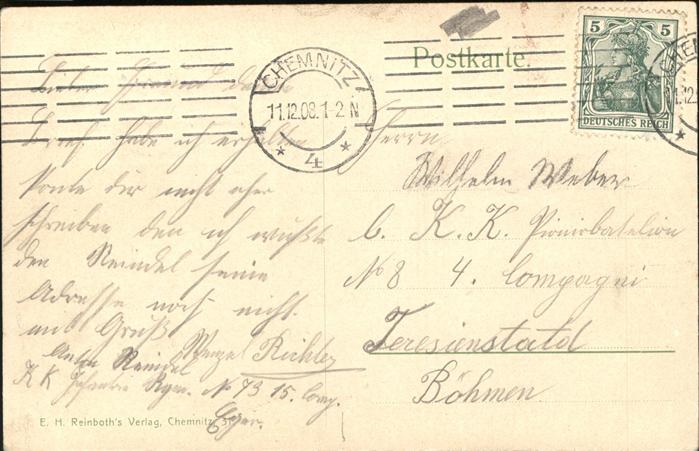 Postkarte.
CHEMNITZ
11.12.08. 1-2 N
* 4 *
5 5
DEUTSCHES REICH
Lieber Freund
Brief habe ich erhalten
konte dir nicht eher
schreiben den ich wußte
den Reindel seine
Adresse noch nicht.
mit Gruß
Wenzel Richter
Anton Reindel
K K Infanterie Regm. No 73 15. Comp.
Eger.
Herrn
Wilhelm Weber
b. K. K. Pionirbatelion
No 8 4. Compagni
Teresienstatd
Böhmen
E. H. Reinboth's Verlag, Chemnitz